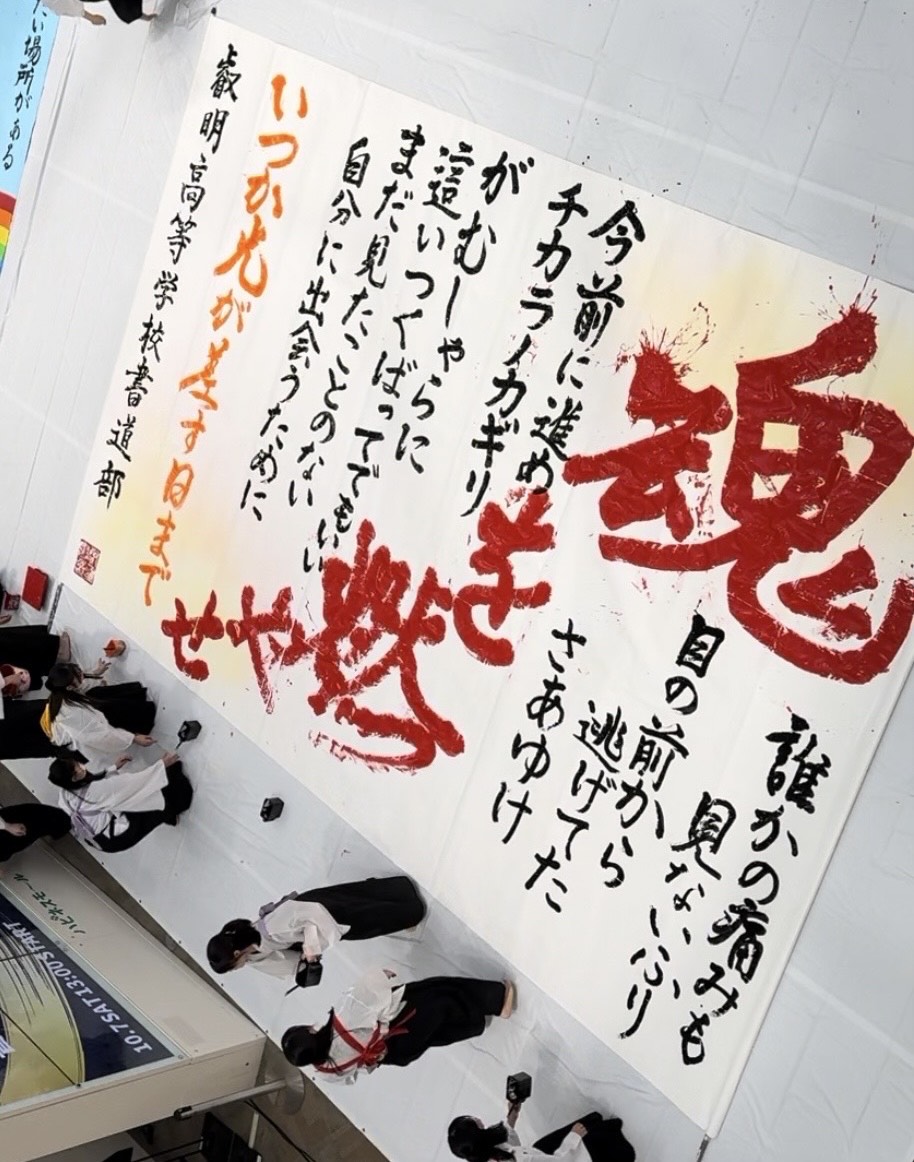 魂を燃やせ
誰かの痛みも
見ないふり
目の前から
逃げてた
さあゆけ
今前に進め
チカラノカギリ
がむしゃらに
這いつくばってでもいい
まだ見たことのない
自分に出会うために
いつか光が差す日まで
叡明高等学校書道部
たい場所がある
ハピネスモール
10.7SAT13:00START